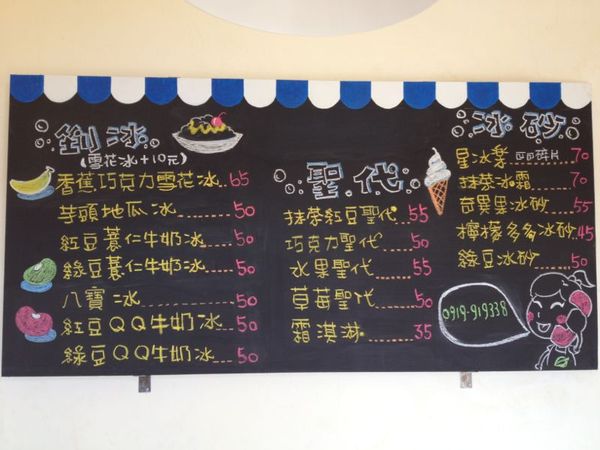 剉冰
(雪花冰+10元)
香蕉巧克力雪花冰..65
芋頭地瓜冰.......50
紅豆薏仁牛奶冰...50
綠豆薏仁牛奶冰...50
八寶冰.........50
紅豆QQ牛奶冰...50
綠豆QQ牛奶冰...50
聖代
抹茶紅豆聖代..55
巧克力聖代....50
水果聖代......55
草莓聖代.....50
霜淇淋.......35
冰砂
星冰樂 70
抹茶冰霜....70
奇異果冰砂....55
檸檬多多冰砂.45
綠豆冰砂....50
0919-919338